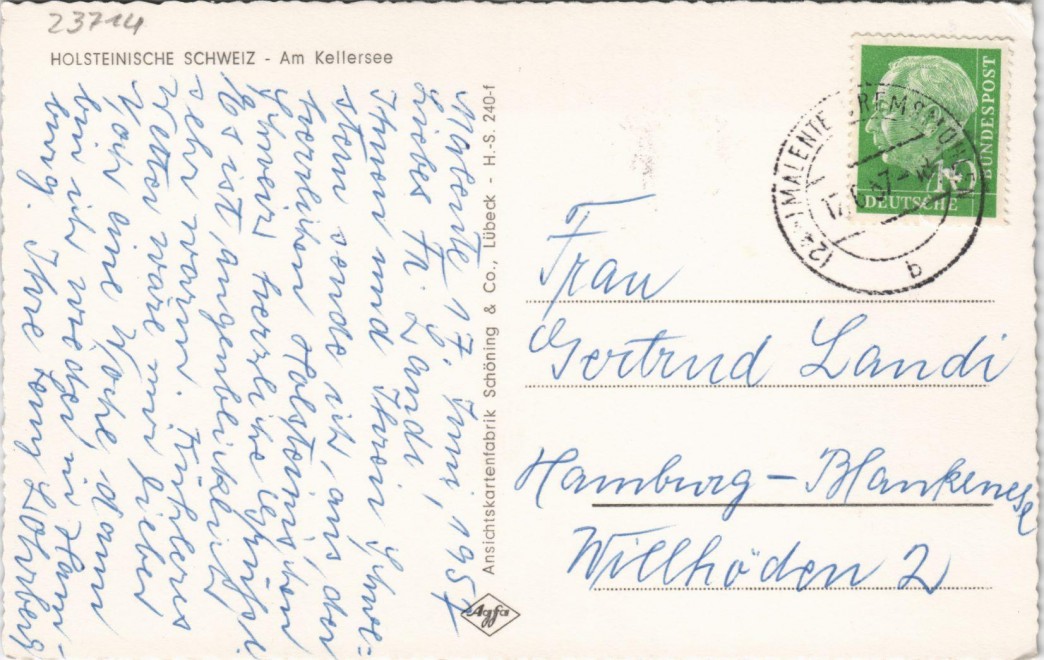 23714
HOLSTEINISCHE SCHWEIZ - Am Kellersee
Malente 17. Juni, 1957
Liebes Fr. Landi
Ihnen und Ihrer Schwe=
stern sende ich, aus der
herrlichen Holsteinischen
Schweiz herzliche Grüße.
Es ist augenblicklich
sehr warm. Kühleres
Wetter wäre mir lieber
Noch eine Woche dann
bin ich wieder in Ham-
burg. Ihre Tony Lohrberg
Ansichtskartenfabrik Schöning & Co., Lübeck - H.-S. 240-f
Agfa
DEUTSCHE
BUNDESPOST
MALENTE
b
Frau
Gertrud Landi
Hamburg - Blankenese
Willhöden 2